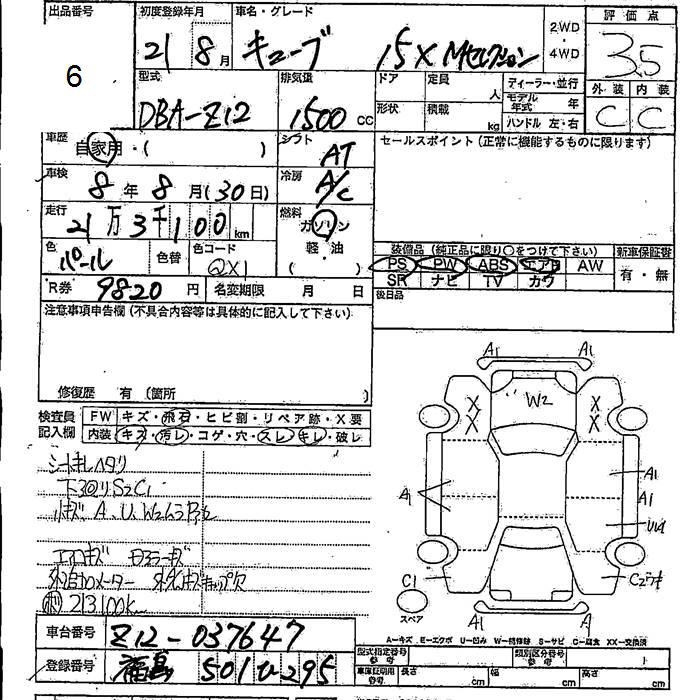 出品番号 初度登録年月 車名・グレード 評価点
6 21 8月 キューブ 15X Mセレクション 2WD・4WD 3.5
型式 排気量 ドア 定員 人 ディーラー・並行 外装 内装
DBA-Z12 1500 cc 形状 積載 kg モデル年式 年 ハンドル 左・右 C C
車歴 自家用・( ) シフト AT セールスポイント (正常に機能するものに限ります)
車検 8年 8月(30日) 冷房 A/C
走行 21万3千100km 燃料 ガソリン 軽・油 ( )
色 パール 色替 色コード QX1 装備品 (純正品に限り○をつけて下さい) 新車保証書
PS PW ABS エアB AW 有・無
SR ナビ TV カワ
R券 9820円 名変期限 月 日 後日品
注意事項申告欄 (不具合内容等は具体的に記入して下さい)
修復歴 有 (箇所 )
検査員記入欄 FW キズ・飛石・ヒビ割・リペア跡・X要
内装 キズ・汚レ・コゲ・穴・スレ・キレ・破レ
シートキレヘタリ
下廻りS2C1
小キズ A、U、W2
エアロキズ
213100k
A1 A1
W2
X X
X X
A1 A1
A1
C1 C2
スペア
A1 A
A-キズ E-エクボ U-凹み W-補修跡 S-サビ C-腐食 XX-交換済
車台番号 Z12-037647 型式指定番号 参考 類別区分番号 参考
登録番号 福島 501 ひ 295 車庫証明用 参考 長さ cm 幅 cm 高さ cm